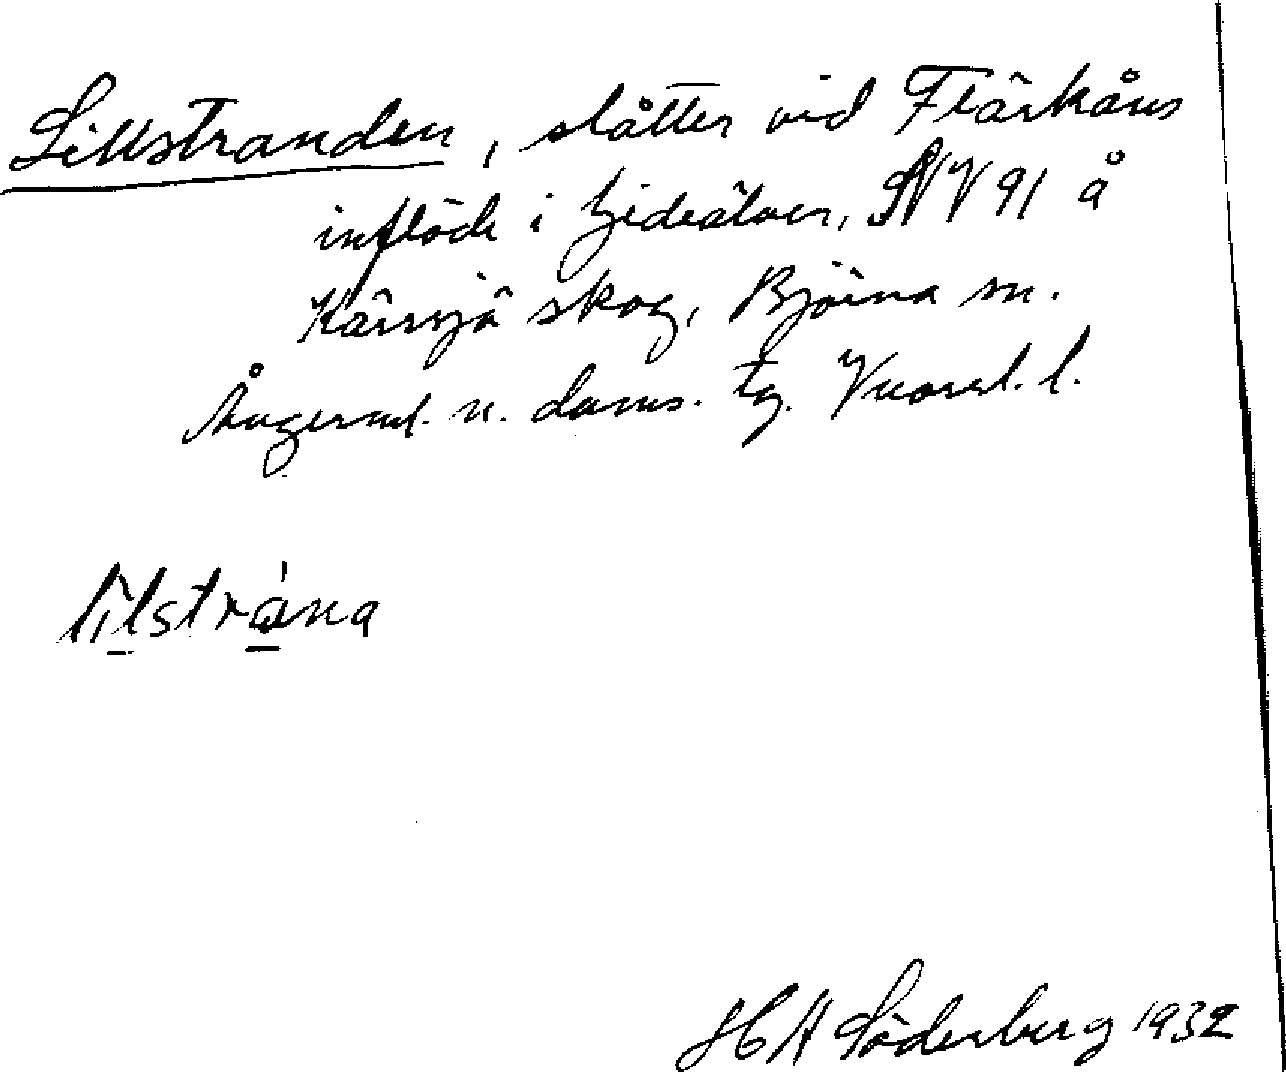 Lillstranden, slåtter vid Flärkåns
inflöde i Gideälven, NV 91 å
Kärrsjö skog, Björna sn.
Ångerml. n. doms. tg. Vnorrl. l.
lìlstràna
H A Söderberg 1932